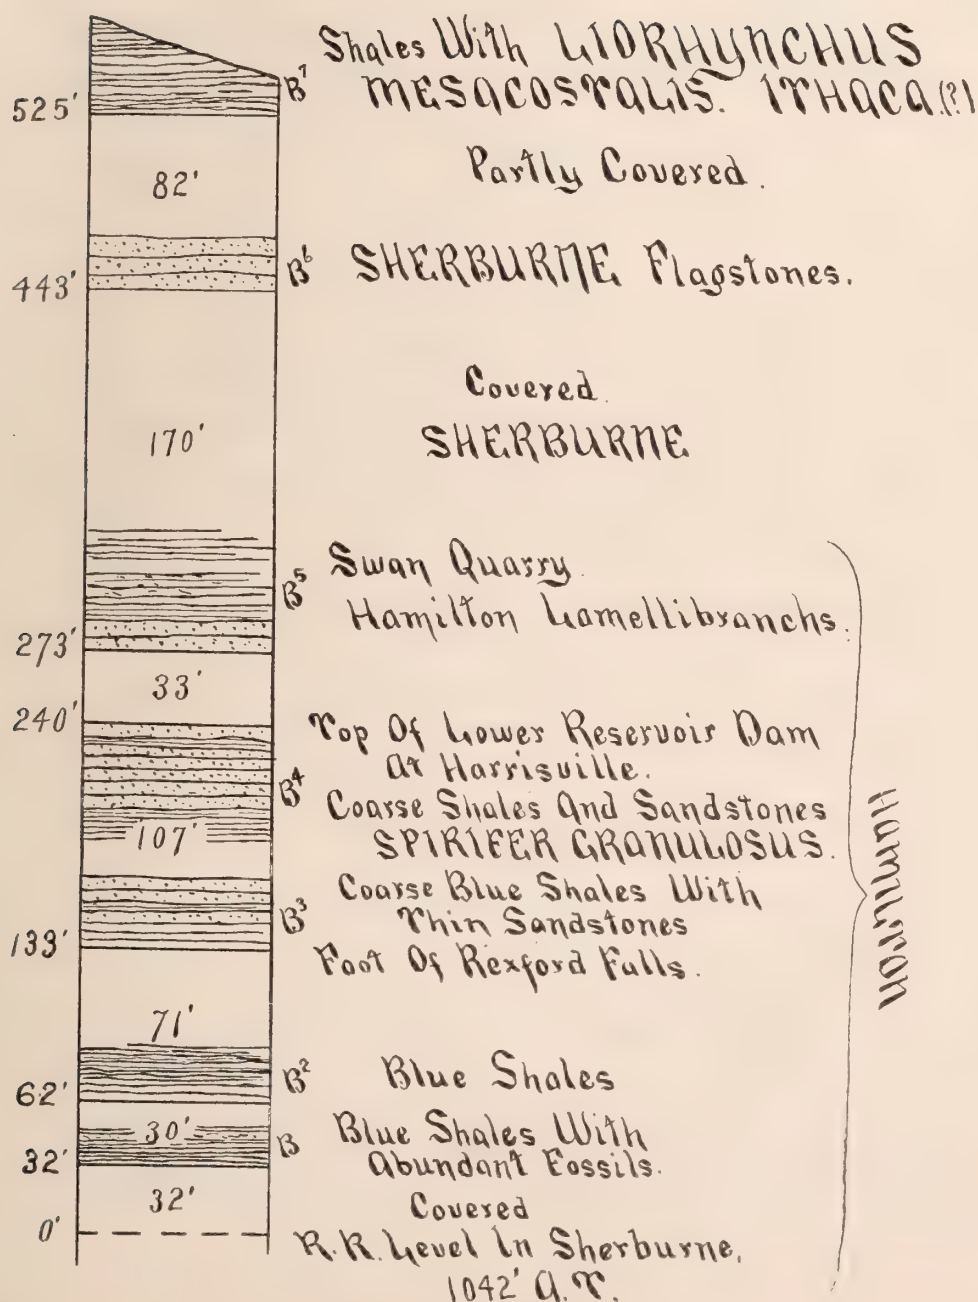 Shales With LIORHYNCHUS
B⁷ MESACOSTALIS. ITHACA.(?)
525'
82' Partly Covered.
B⁶ SHERBURNE Flagstones.
443'
Covered.
170' SHERBURNE
Swan Quarry.
B⁵ Hamilton Lamellibranchs.
273'
33'
240' Top Of Lower Reservoir Dam
At Harrisville.
B⁴ Coarse Shales And Sandstones
107' SPIRIFER GRANULOSUS.
Coarse Blue Shales With
B³ Thin Sandstones
133' Foot Of Rexford Falls.
71'
B² Blue Shales
62'
30' B Blue Shales With
32' Abundant Fossils.
32' Covered
0' R.R. Level In Sherburne,
1042' A.T.
HAMILTON